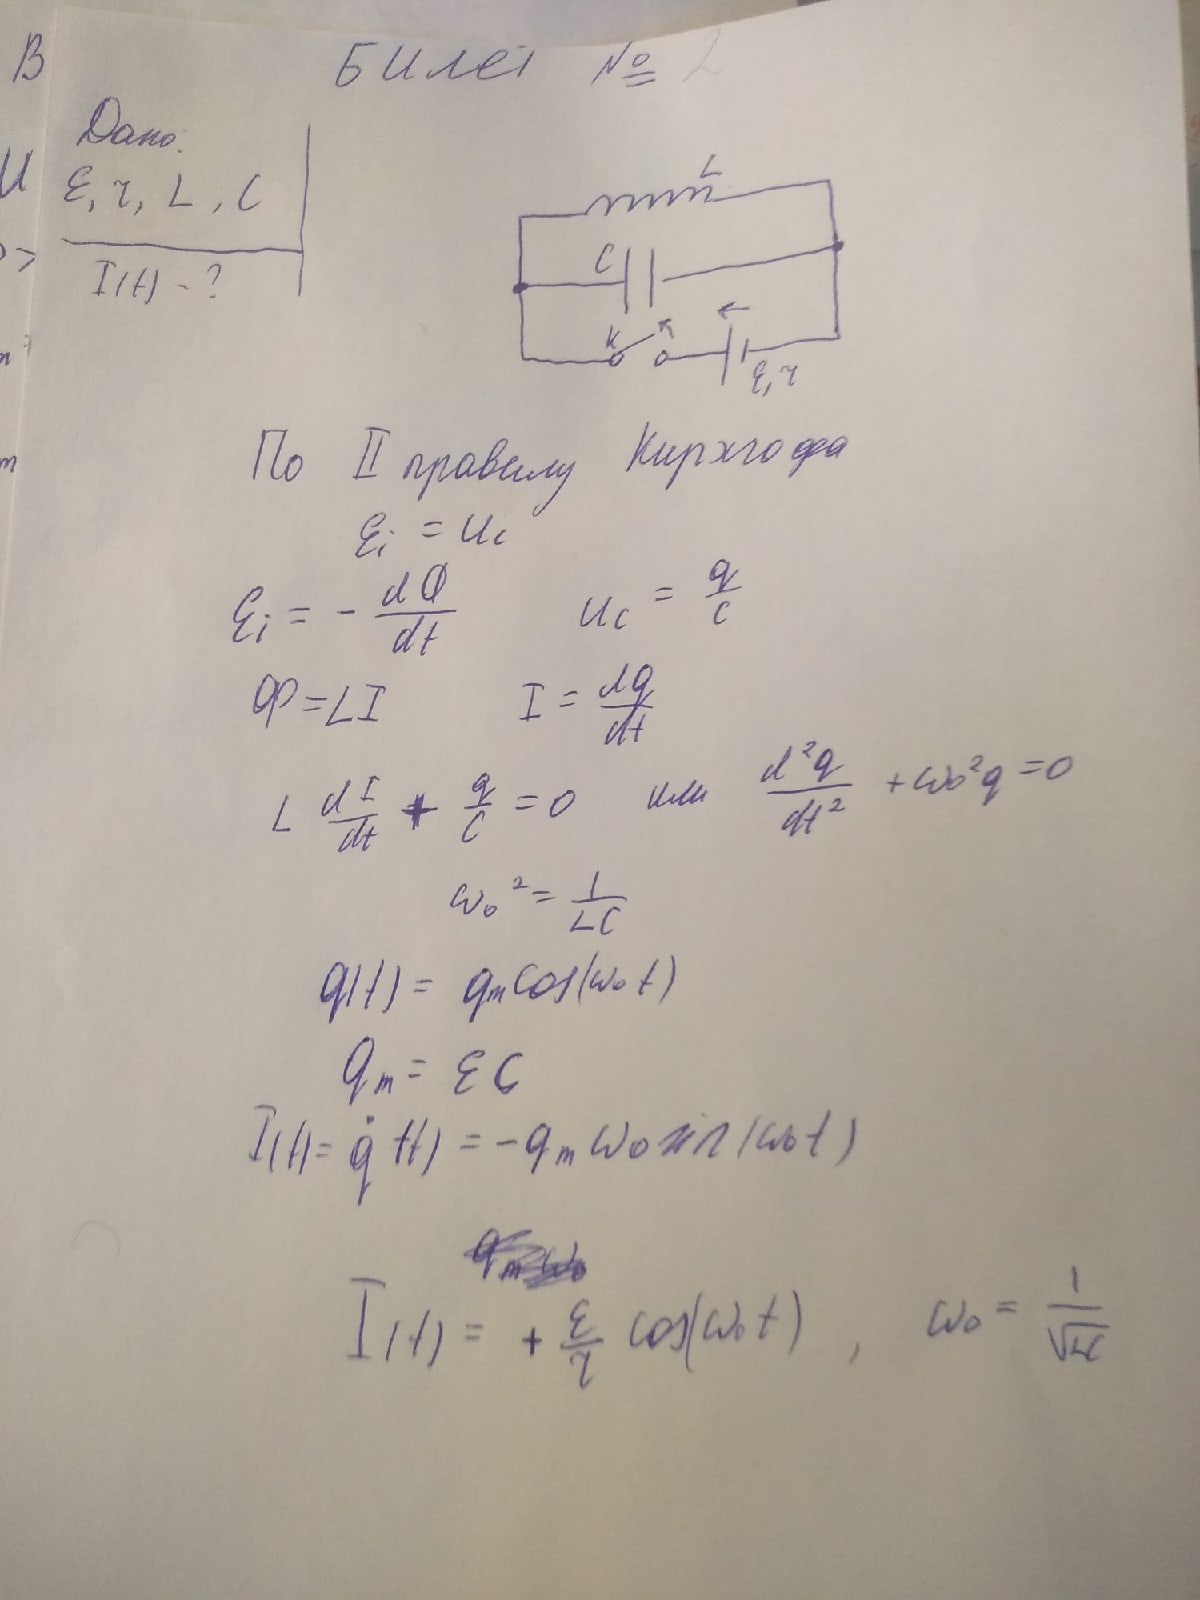 В
Билет № 2
Дано:
И
ε, r, L, C
I(t) - ?
L
C
K
ε, r
По II правилу Кирхгофа
εi = Uc
εi = - dФ/dt Uc = q/C
Ф = LI I = dq/dt
L dI/dt + q/C = 0 или d²q/dt² + ω₀²q = 0
ω₀² = 1/LC
q(t) = qm cos(ω₀t)
qm = εC
I(t) = q̇(t) = -qm ω₀ sin(ω₀t)
I(t) = + ε/r cos(ω₀t), ω₀ = 1/√LC